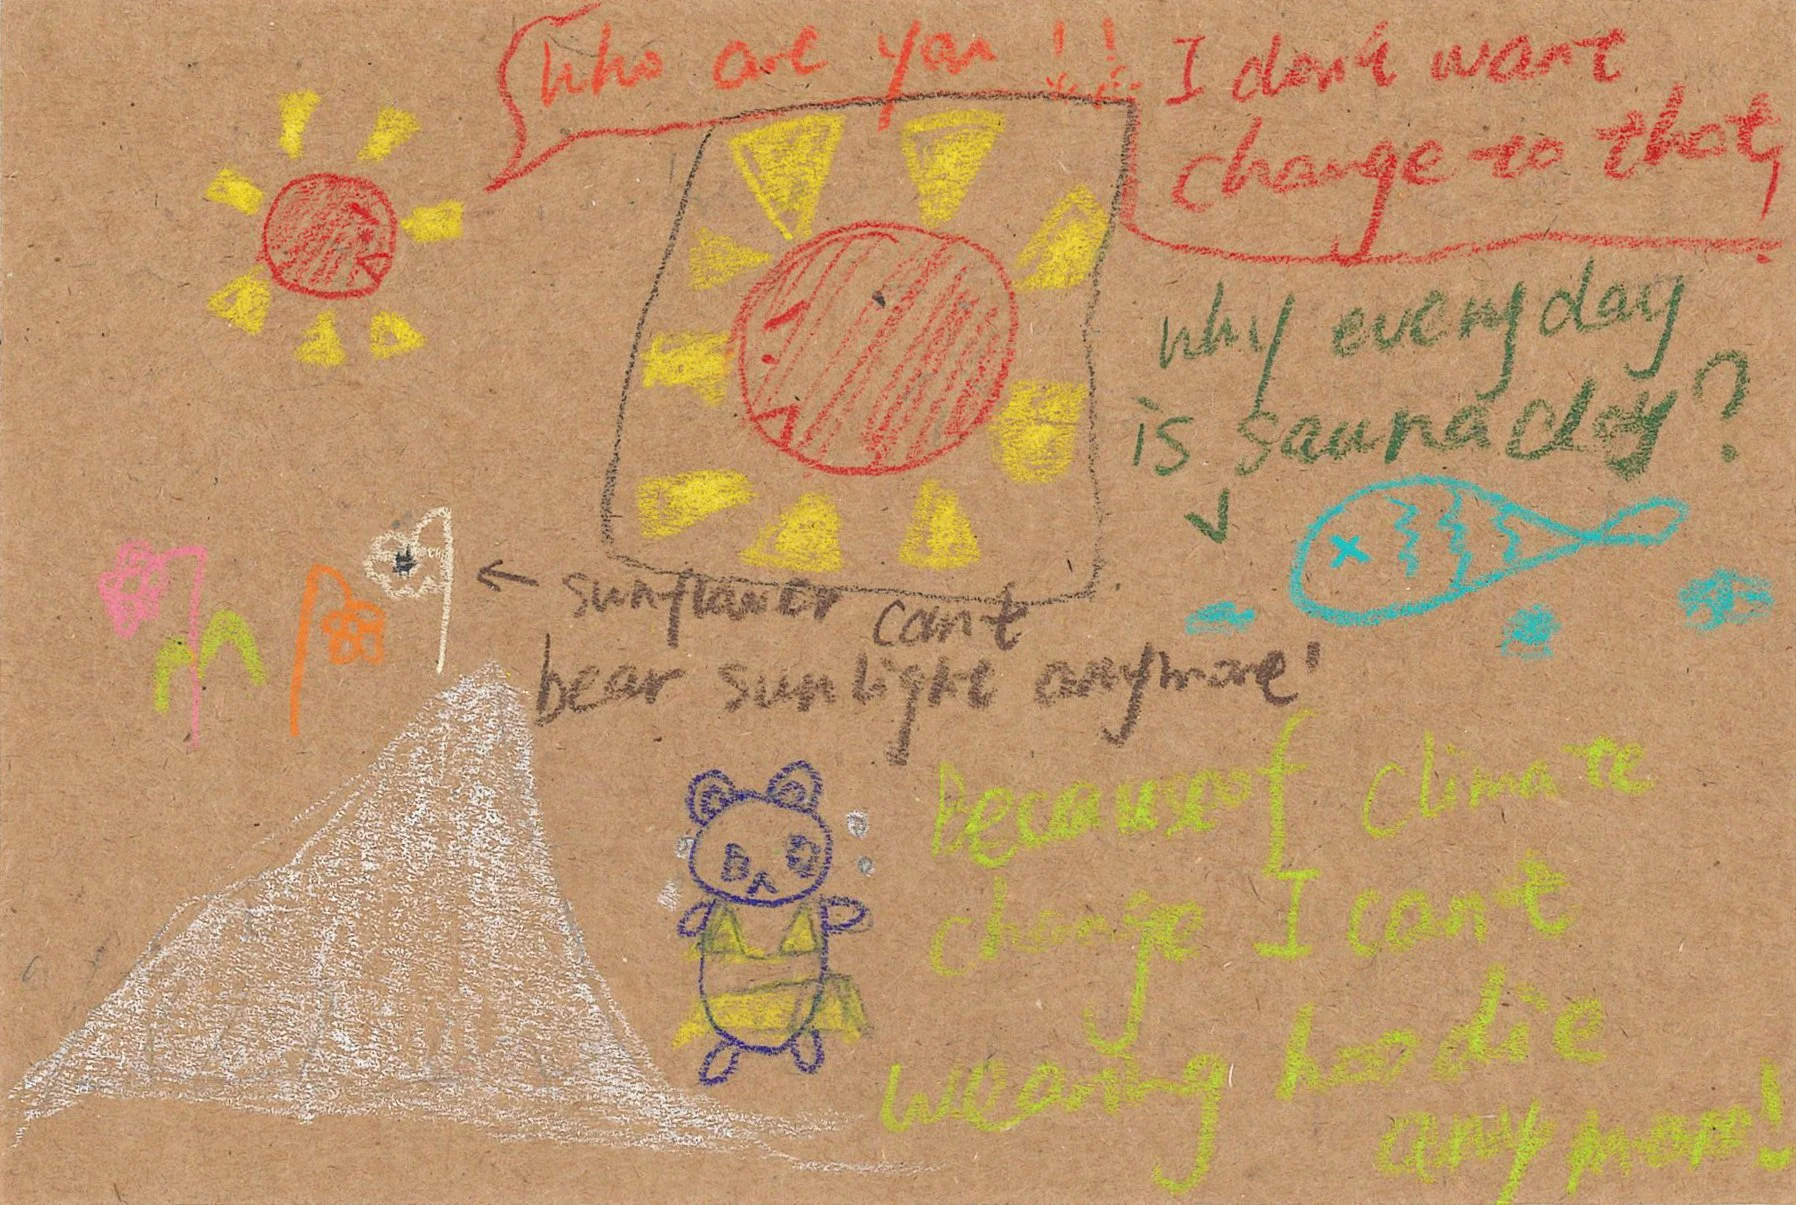 Who are you !!
I don't want
change to that,
why everyday
is sauna day?
sunflower can't
bear sunlight anymore!
Because of climate
change I can't
wearing hoodie
anymore!